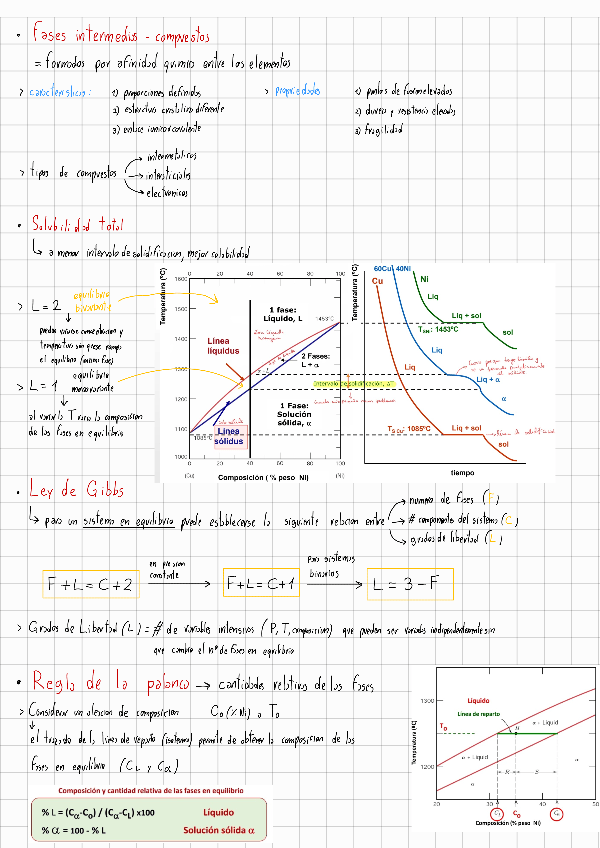 • Fases intermedias - compuestos
= formados por afinidad química entre los elementos
> características:
1) proporciones definidas
2) estructura cristalina diferente
3) enlace iónico/covalente
> propiedades
1) puntos de fusión elevados
2) dureza y resistencia elevadas
3) fragilidad
> tipos de compuestos
intermetálicos
intersticiales
electrónicos
• Solubilidad total
↳ a menor intervalo de solidificación, mejor solubilidad
> L = 2
equilibrio bivariante
puedes variar concentración y
temperatura sin que se rompa
el equilibrio
> L = 1
equilibrio monovariante
al variar T varía la composición
de las fases en equilibrio
Temperatura (ºC)
0 20 40 60 80 100
1600
1500
1400
1300
1200
1100
1000
1 fase:
Líquido, L
1453ºC
Línea
líquidus
2 Fases:
L + α
Intervalo de solidificación, ΔT
1 Fase:
Solución
sólida, α
Línea
sólidus
1085ºC
0 20 40 60 80 100
(Cu) Composición ( % peso Ni) (Ni)
Temperatura (ºC)
60Cu 40Ni
Cu
Ni
Liq
Liq + sol
TS Ni: 1453ºC
sol
Liq
Liq
Liq + α
α
TS Cu: 1085ºC
Liq + sol
sol
tiempo
• Ley de Gibbs
↳ para un sistema en equilibrio puede establecerse la siguiente relación entre
número de fases (F)
# componentes del sistema (C)
grados de libertad (L)
F + L = C + 2
en presión
constante
F + L = C + 1
para sistemas
binarios
L = 3 - F
> Grados de Libertad (L) = # de variables intensivas (P, T, composición) que pueden ser variadas independientemente sin
que cambie el nº de fases en equilibrio
• Regla de la palanca → cantidades relativas de las fases
> Considerar una aleación de composición C₀ (% Ni) a T₀
el trazado de la línea de reparto (isoterma) permite de obtener la composición de las
fases en equilibrio (CL y Cα)
Composición y cantidad relativa de las fases en equilibrio
% L = (Cα-C₀) / (Cα-CL) x100 Líquido
% α = 100 - % L Solución sólida α
Temperatura (ºC)
1300
1200
Líquido
Línea de reparto
T₀
B
α + Liquid
α + Liquid
α
α
R
S
20 30 40 50
CL C₀ Cα
Composición (% peso Ni)